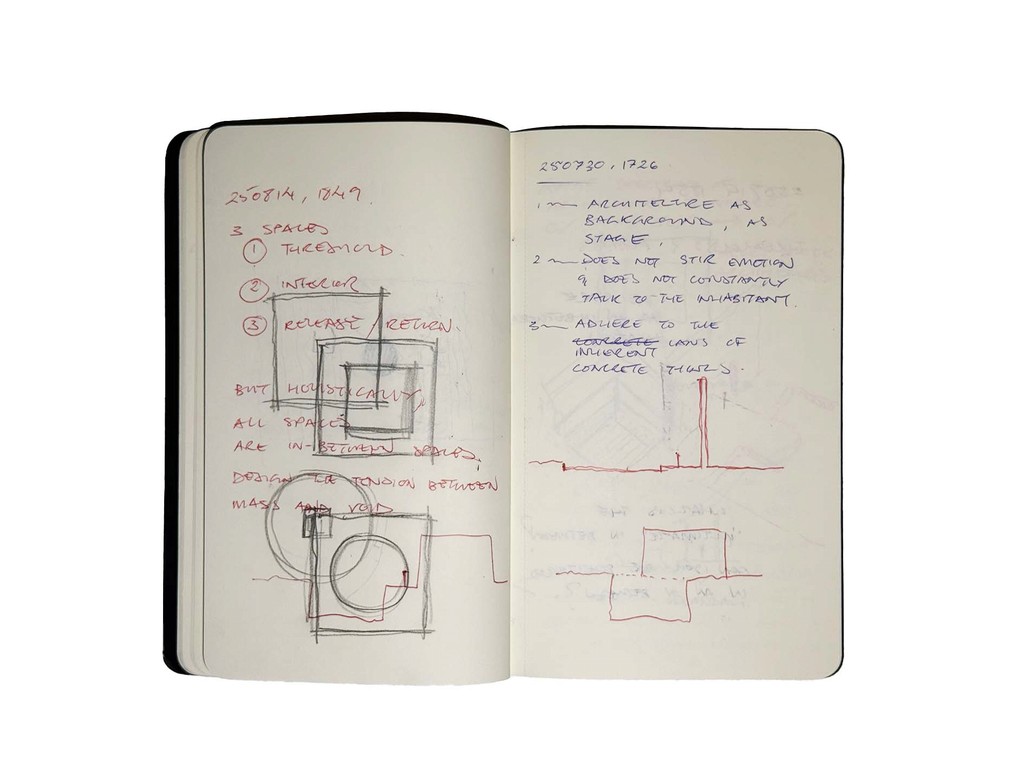 250814, 1849.
3 SPACES
① THRESHOLD.
② INTERIOR
③ RELEASE / RETURN.
BUT HOLISTICALLY,
ALL SPACES
ARE IN-BETWEEN SPACES.
DESIGN THE TENSION BETWEEN
MASS AND VOID
250730, 1726
1 — ARCHITECTURE AS
BACKGROUND, AS
STAGE.
2 — DOES NOT STIR EMOTION
& DOES NOT CONSTANTLY
TALK TO THE INHABITANT.
3 — ADHERE TO THE
CONCRETE LAWS OF
INHERENT
CONCRETE THINGS.